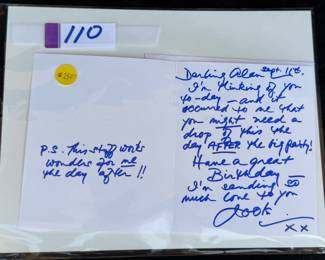 110
P.S. This stuff works
wonders for me
the day after!!
Darling Alan Sept.
I'm thinking of you
to-day - and it
occurred to me that
you might need a
drop of this the
day AFTER the big party!
Have a great
Birthday
I'm sending so
much love to you
xx